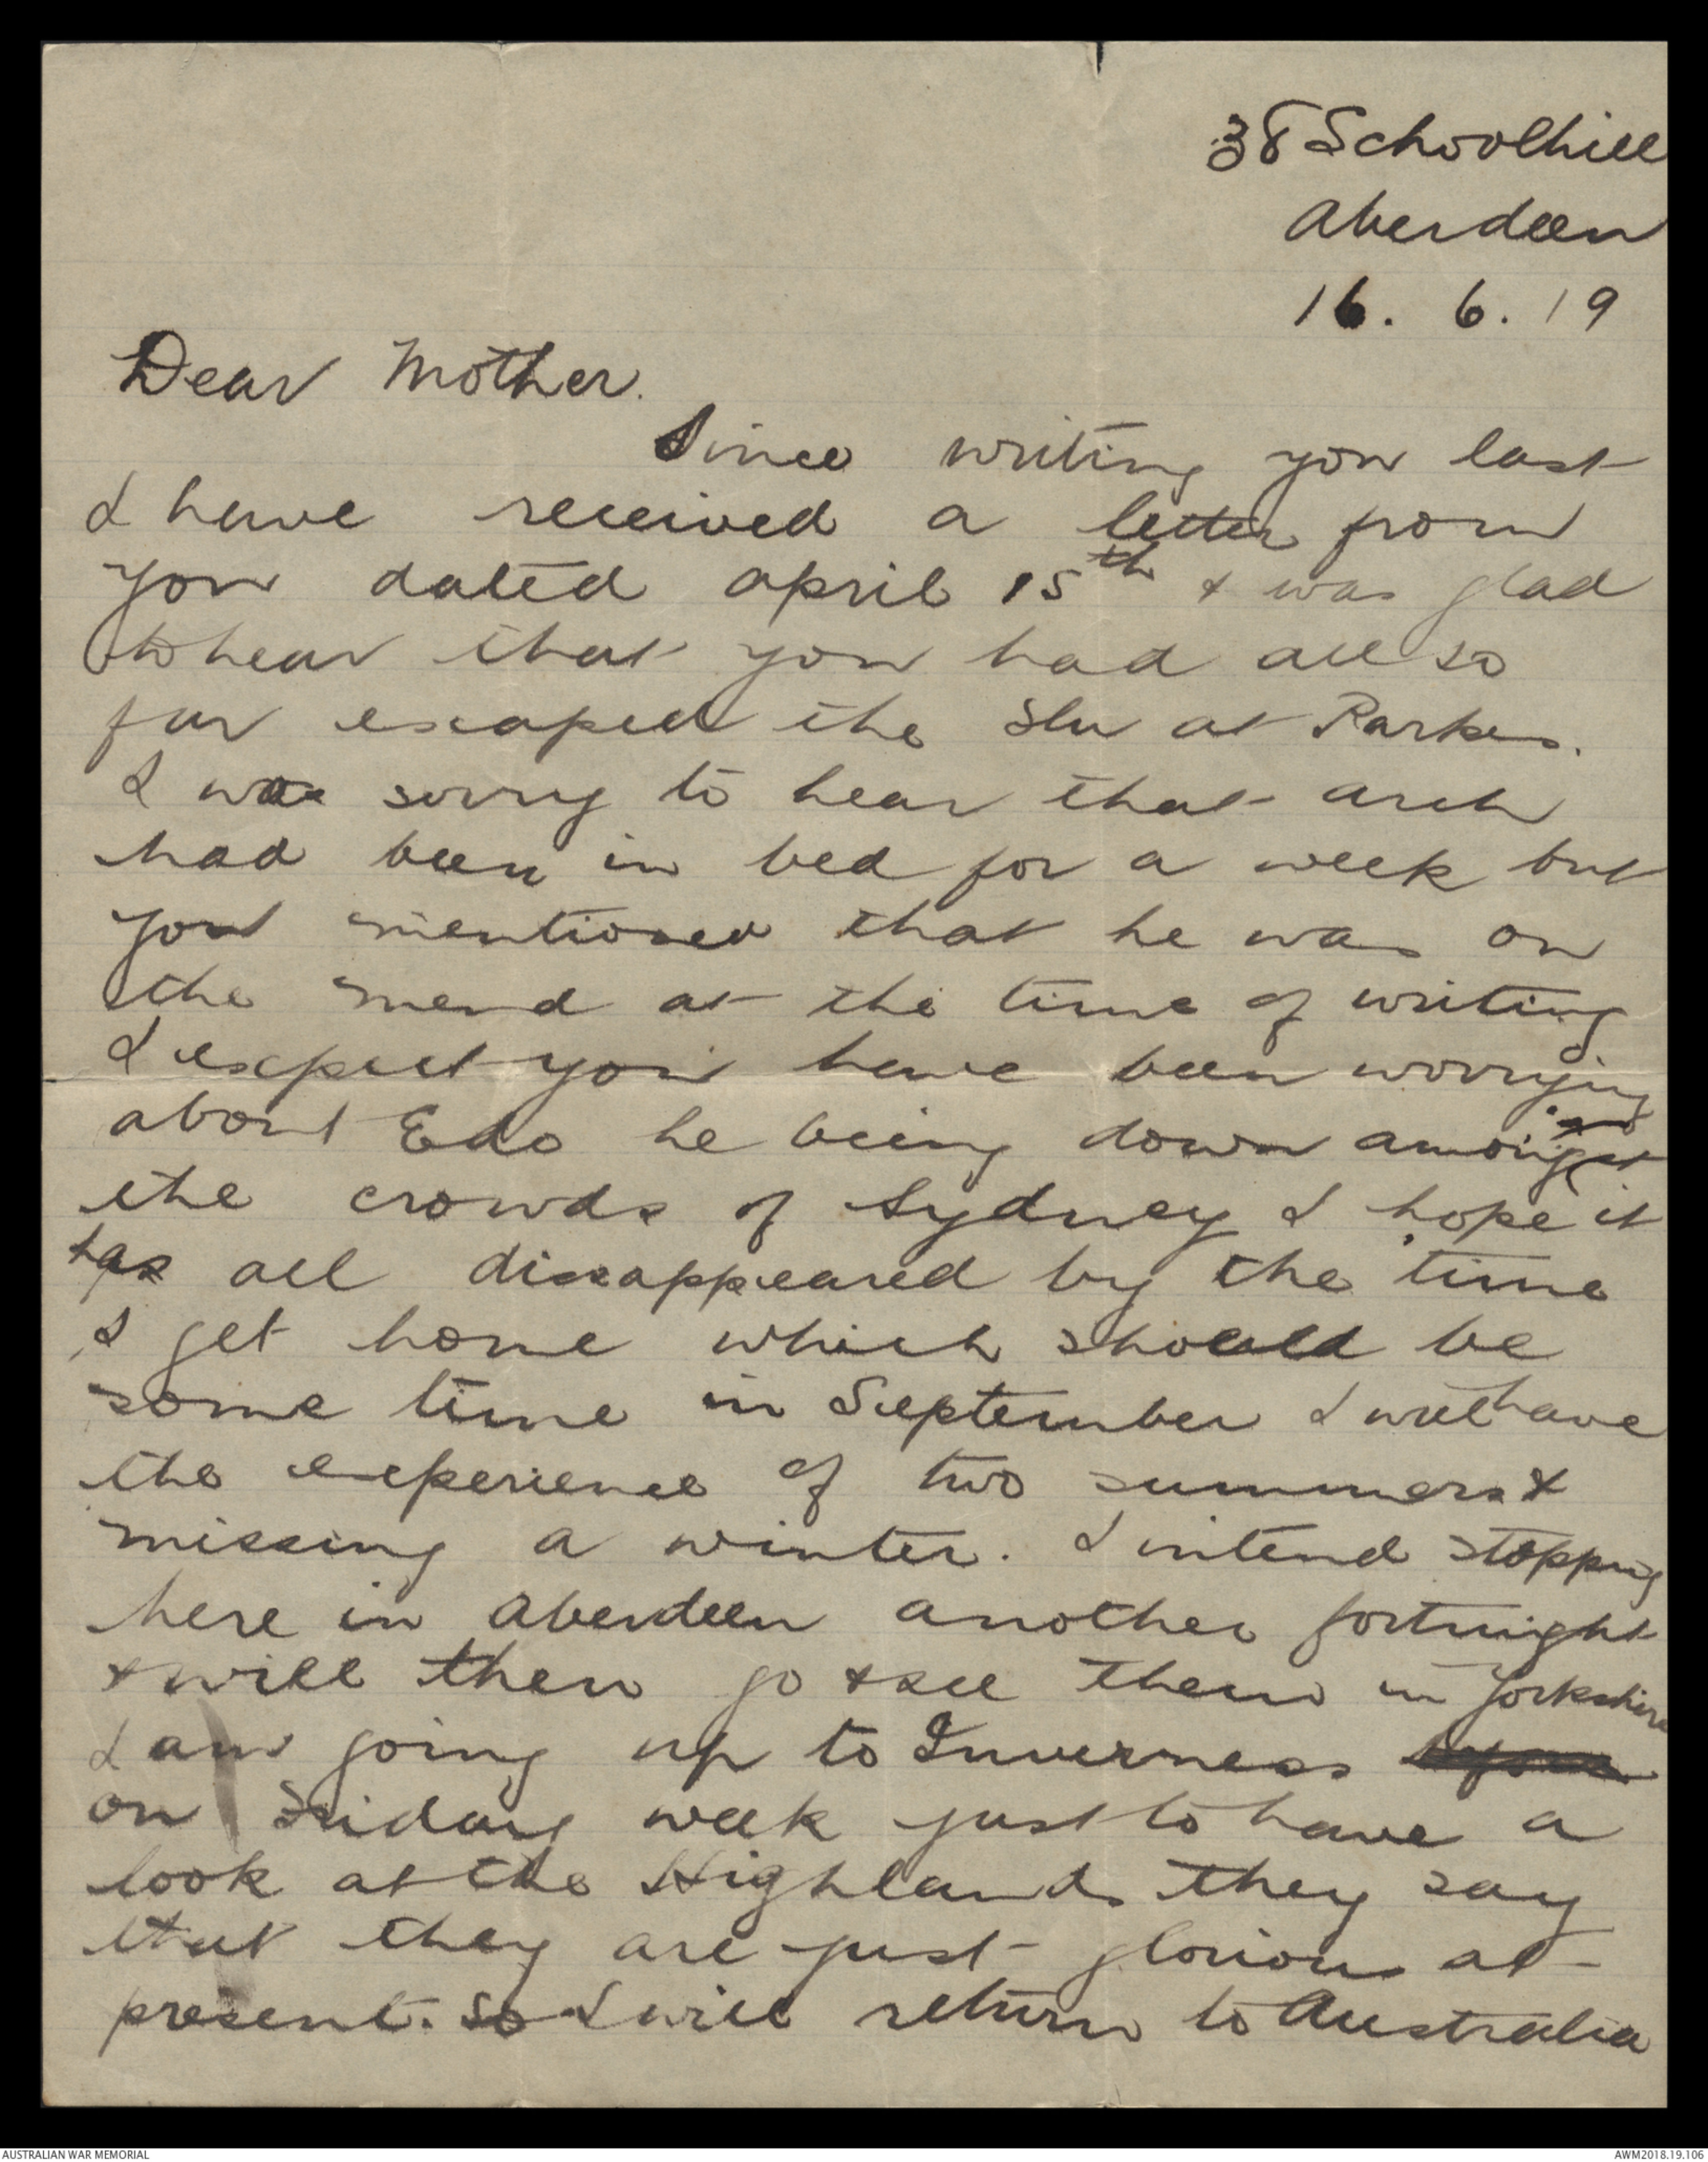 38 Schoolhill
Aberdeen
16. 6. 19
Dear Mother.
Since writing you last
I have received a letter from
you dated april 15th & was glad
to hear that you had all so
far escaped the flu at Parkes.
I was sorry to hear that arch
had been in bed for a week but
you mentioned that he was on
the mend at the time of writing
I expect you have been worrying
about he being down amongst
the crowds of Sydney I hope it
has all dissappeared by the time
I get home which should be
some time in September I will have
the experience of two summers &
missing a winter. I intend stopping
here in Aberdeen another fortnight
& will then go & see them in Yorkshire
I am going up to Inverness
on Friday week just to have a
look at the Highlands they say
that they are just glorious at
present. So I will return to Australia
AUSTRALIAN WAR MEMORIAL
AWM2018.19.106